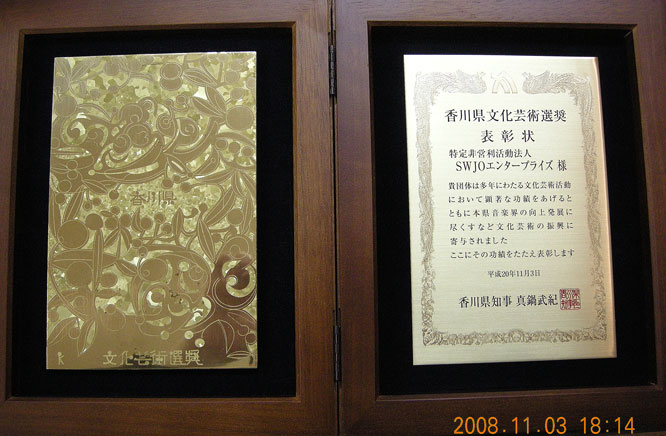 香川県
文化芸術選奨
香川県文化芸術選奨
表彰状
特定非営利活動法人
SWJOエンタープライズ 様
貴団体は多年にわたる文化芸術活動
において顕著な功績をあげると
ともに本県音楽界の向上発展に
尽くすなど文化芸術の振興に
寄与されました
ここにその功績をたたえ表彰します
平成20年11月3日
香川県知事 真鍋武紀
2008.11.03 18:14